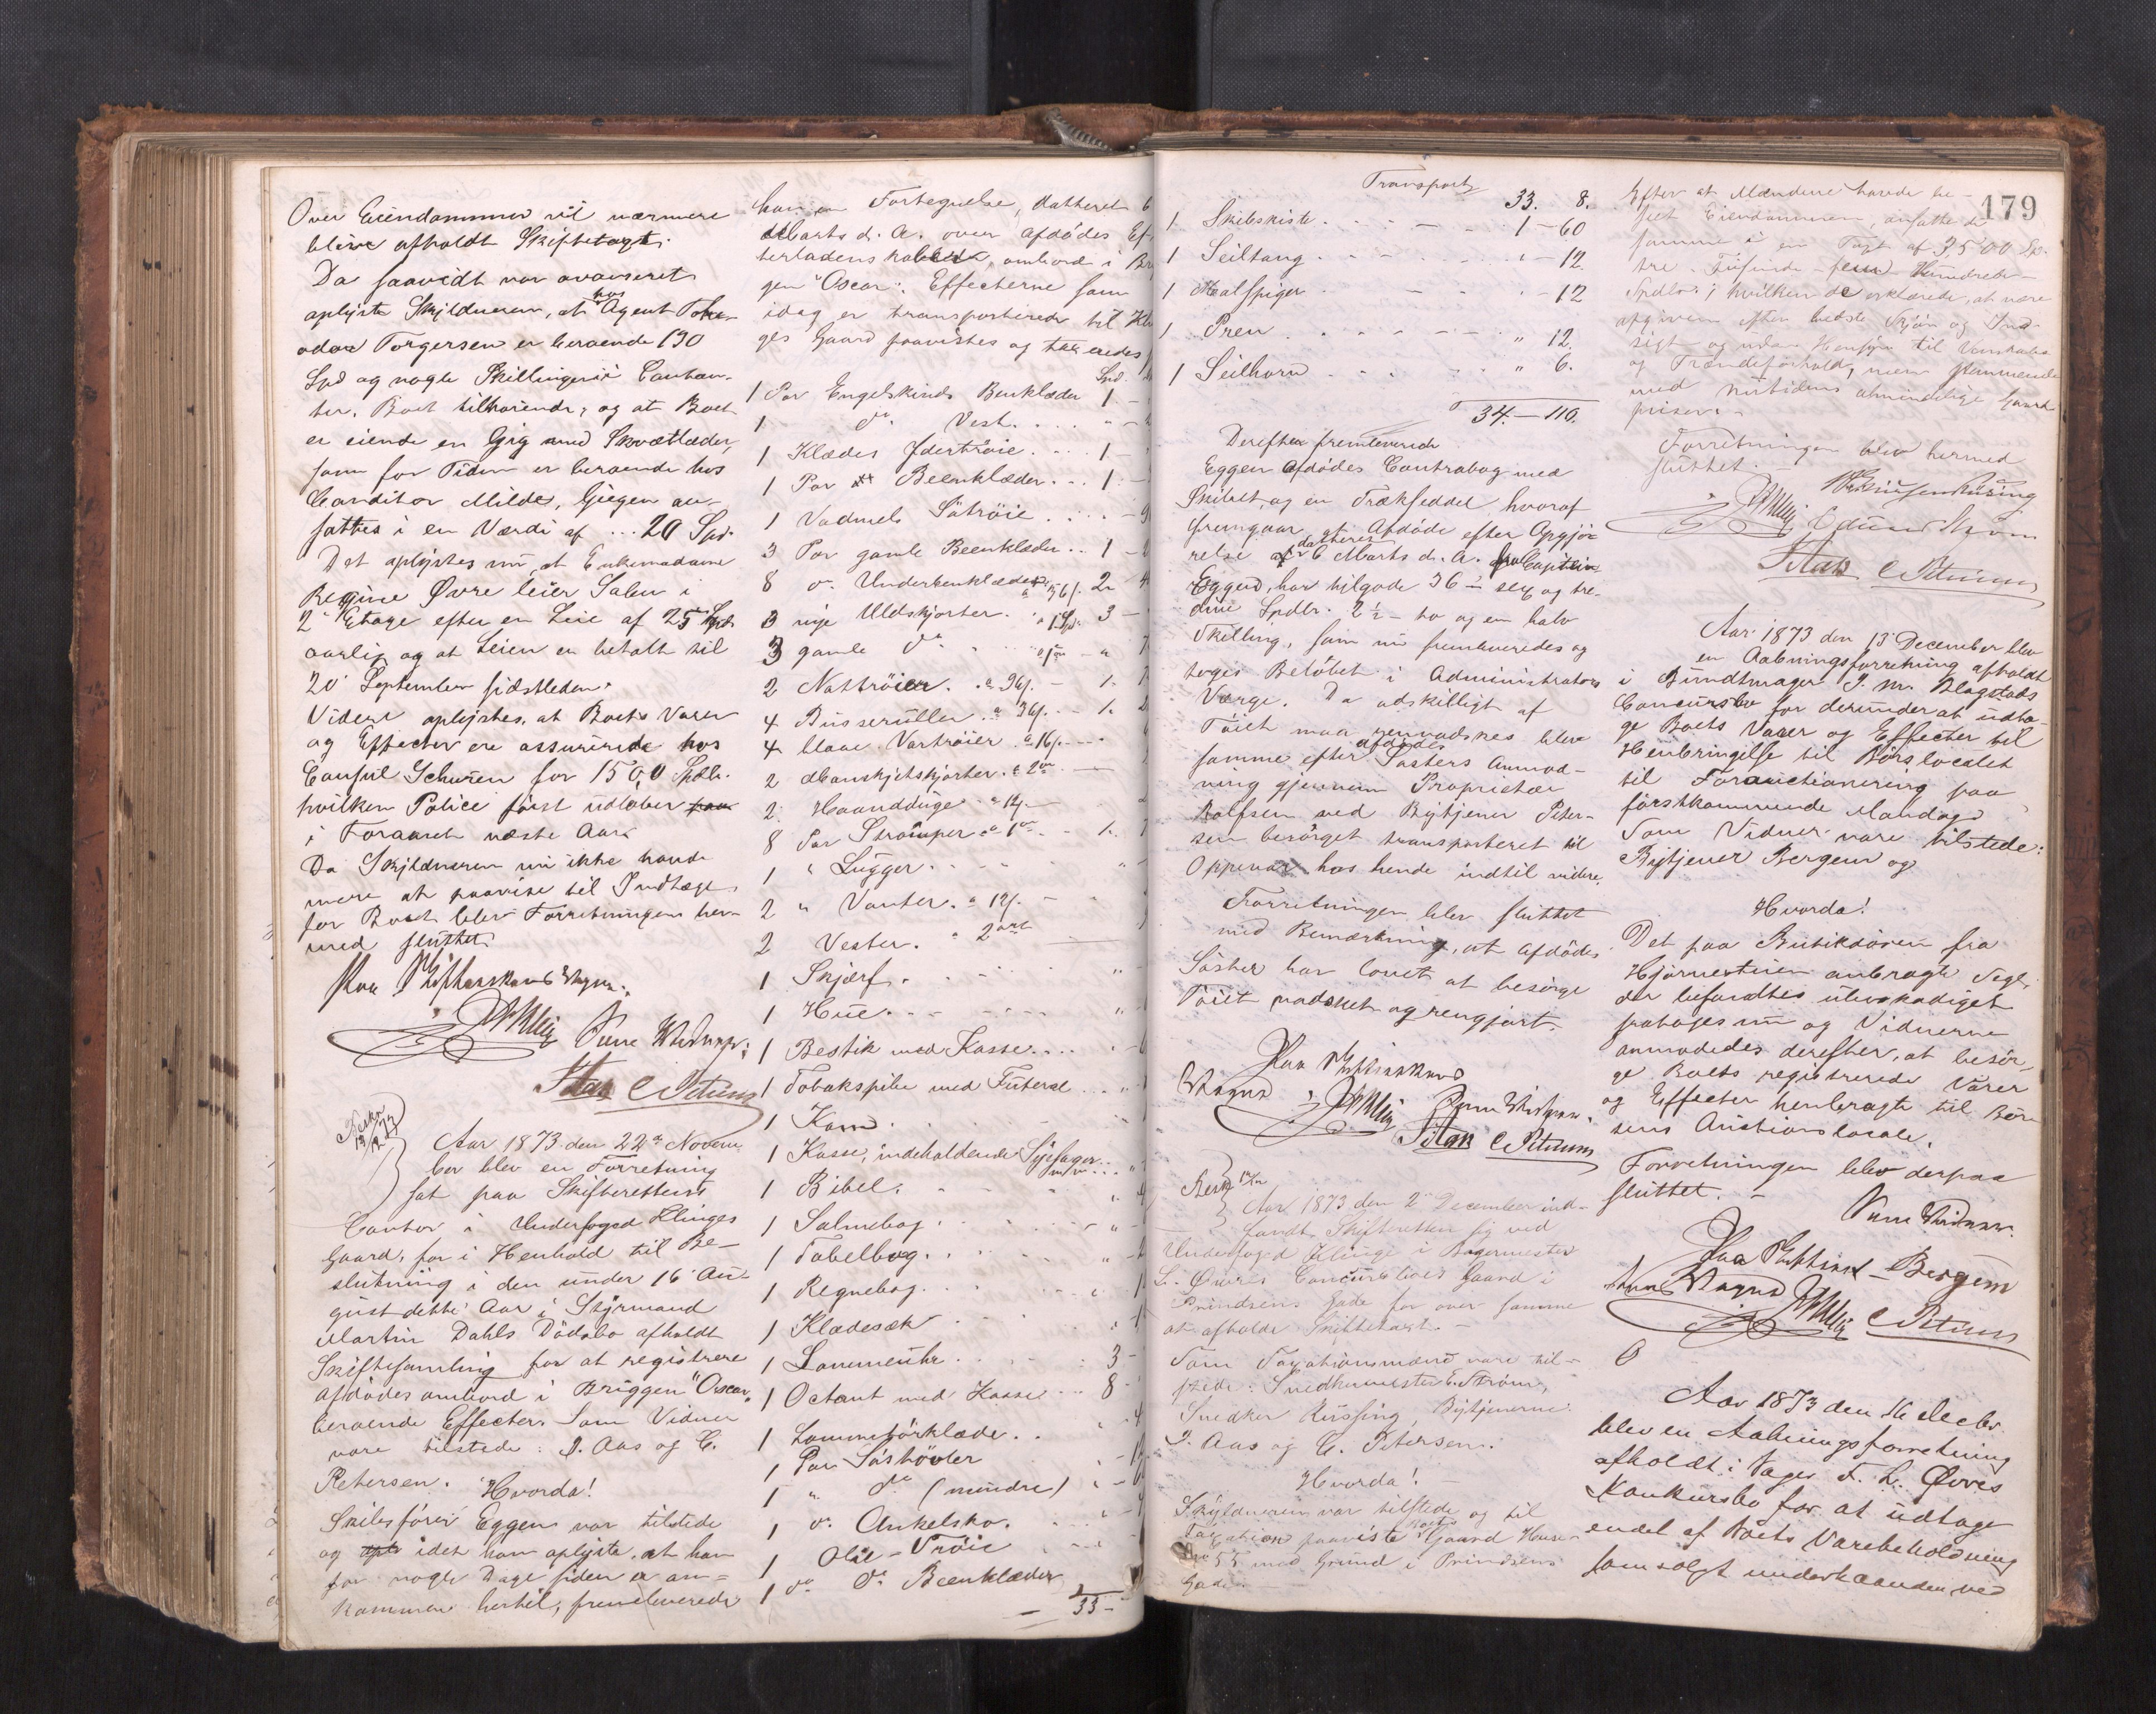 Over Eiendommen vil nærmere
blive afholdt Skiftetaxt.
Da saavidt var avanseret
oplyste Skyldneren, at hos Agent
Torgersen er beroende 130
Spd og nogle Skillinger i Contan-
ter, Boet tilhørende, og at Boet
er eiende en Gig med Skvætlæder,
som for Tiden er beroende hos
Conditor Milde, Giegen an-
sattes i en Værdi af ... 20 Spd.
Det oplystes nu, at Enkemadame
Regine Øvre leier Salen i
2den Etage efter en Leie af 25 Spd
aarlig og at Leien er betalt til
20 September sidstleden.
Videre oplystes, at Boets Varer
og Effecter ere assurerede hos
Consul Schuren for 1500 Spdlr.
hvilken Police først udløber
i Foraaret næste Aar.
Da Skyldneren nu ikke havde
mere at paavise til Indtægt
for Boet blev Forretningen her-
med sluttet.
Paa Skifteforvalterens Vegne.
Kling, Som Vidner:
P. Aas C Petersen
Aar 1873 den 22de Novem-
ber blev en Forretning
sat paa Skifterettens
Contor i Underfoged Klinges
Gaard, for i Henhold til Be-
slutning i den under 16 Au-
gust dette Aar i Styrmand
Martin Dahls Dødsbo afholdt
Skiftesamling for at registrere
afdødes ombord i Briggen "Oscar"
beroende Effecter. Som Vidner
vare tilstede: P. Aas og C.
Petersen. Hvorda!
Skibsfører Eggen var tilstede
og idet han oplyste, at han
for nogle Dage siden er an-
kommen hertil, fremleverede
han en Fortegnelse, datteret 6
Marts d. A. over afdødes Ef-
terladenskaber ombord i Br
gen "Oscar". Effecterne som
idag er transporterede til Kl
ges Gaard paavistes og
Spd.
1 Par Engelskinds Benklæder 1 -
1 do Vest.
1 Klædes Ydertrøie .... 1 -
1 Par Beenklæder ... 1 -
1 Vadmels Søtrøie ....
3 Par gamle Beenklæder .. 1 -
8 do. Underbenklæder a 36s. 2
3 nye Uldskjorter. a 1 Spd. 3 -
3 gamle do
2 Nattrøier. a 96s. - 1.
4 Busseruller a 36s. - 1.
4 blaae Vartrøier a 16s.
2 Manskjetskjorter. a 2
2 Haandduge a 12s.
8 Par Strømper a 1 - 1.
1 " Lugger.
2 " Vanter. a 12s. -
2 Vester. a 2 ort
1 Skjærf.
1 Hue.
1 Bestik med Kasse....
1 Tobakspibe med Futeral
1 Kam.
1 Kasse, indeholdende Sysager m.m.
1 Bibel.
1 Salmebog.
1 Tabelbog.
1 Regnebog.
1 Klædesæk
1 Lommeuhr. 3 -
1 Octant med Kasse ... 8
1 Lommetørklæde..
1 Par Søstøvler
1 " do (mindre)
1 do. Ankelsko.
1 Olie-Trøie
1 do do Beenklæder
33 -
179
Transport 33. 8.
1 Skibskiste. 1 - 60
1 Seiltang. " - 12.
1 Malspiger " - 12
1 Pren " 12.
1 Seilhorn " 6.
34. - 110.
Derefter fremleverede
Eggen afdødes Contrabog med
Skibet, og en Trækseddel hvoraf
fremgaar at Afdøde efter Opgjø-
relse datteret 6 Marts d. A. fra Captein
Eggen, har tilgode 36 - sex og tre-
dive Spdlr. 2½ - to og en halv
Skilling, som nu fremleveredes og
toges Beløbet i Administrators
Værge. Da adskilligt af
Tøiet maa renvadskes blev
samme efter afdødes Søsters Anmod-
ning gjennem Proprietær
Rolfsen ved Bytjener Peter-
sen besørget transporteret til
Oppevar hos hende indtil videre.
Forretningen blev sluttet
med Bemærkning, at afdødes
Søster har lovet at besørge
Tøiet vadsket og rengjort.
Paa Skifterettens
Vegne Klingi Som Vidner.
P. Aas C Petersen
Aar 1873 den 2den December ind-
fandt Skifteretten sig ved
Underfoged Klinge i Bagermester
L. Øvres Concursboes Gaard i
Prindsens Gade for over samme
at afholde Skiftetaxt. -
Som Taxationsmænd vare til-
stede: Snedkermester E. Strøm,
Snedker Russing, Bytjenerne
P. Aas og C. Petersen.
Hvorda!
Skyldneren var tilstede og til
Taxation paaviste Boets Gaard
No 55 med Grund i Prindsens
Gade.
Efter at Mændene havde be-
seet Eiendommen, ansatte de
samme i en Taxt af 3,500 Sp.
tre Tusinde fem Hundrede
Spdlr; hvilken de erklærede, at være
afgiven efter bedste Skjøn og Ind-
sigt og uden Hensyn til Venskabs
og Frændeforhold, men stemmende
med nutidens almindelige Gaard-
priser. -
Forretningen blev hermed
sluttet. -
Klingi Edvard Strøm
P. Aas C Petersen
Aar 1873 den 13 December blev
en Aabningsforretning afholdt
i Bundtmager P. M. Blagstads
Concursbo for derunder at udta-
ge Boets Varer og Effecter til
Henbringelse til Børslocalet
til Forauctionering paa
førstkommende Mandag.
Som Vidner vare tilstede:
Bytjener Bergem og
Hvorda!
Det paa Butikdøren fra
Hjørnestuen anbragte Segl,
der befandtes ubeskadiget
fratoges nu og Vidnerne
anmodedes derefter, at besør-
ge Boets registrerede Varer
og Effecter henbragte til Bør-
sens Auctionslocale.
Forretningen blev derpaa
sluttet. -
Som Vidner.
Paa Skifterettens Bergem
Vegne Klingi C Petersen
Aar 1873 den 16 Decbr.
blev en Aabningsforretning
afholdt i Bager F. L. Øvres
Konkursbo for at udtage
endel af Boets Varebeholdning
som solgt underhaanden ved